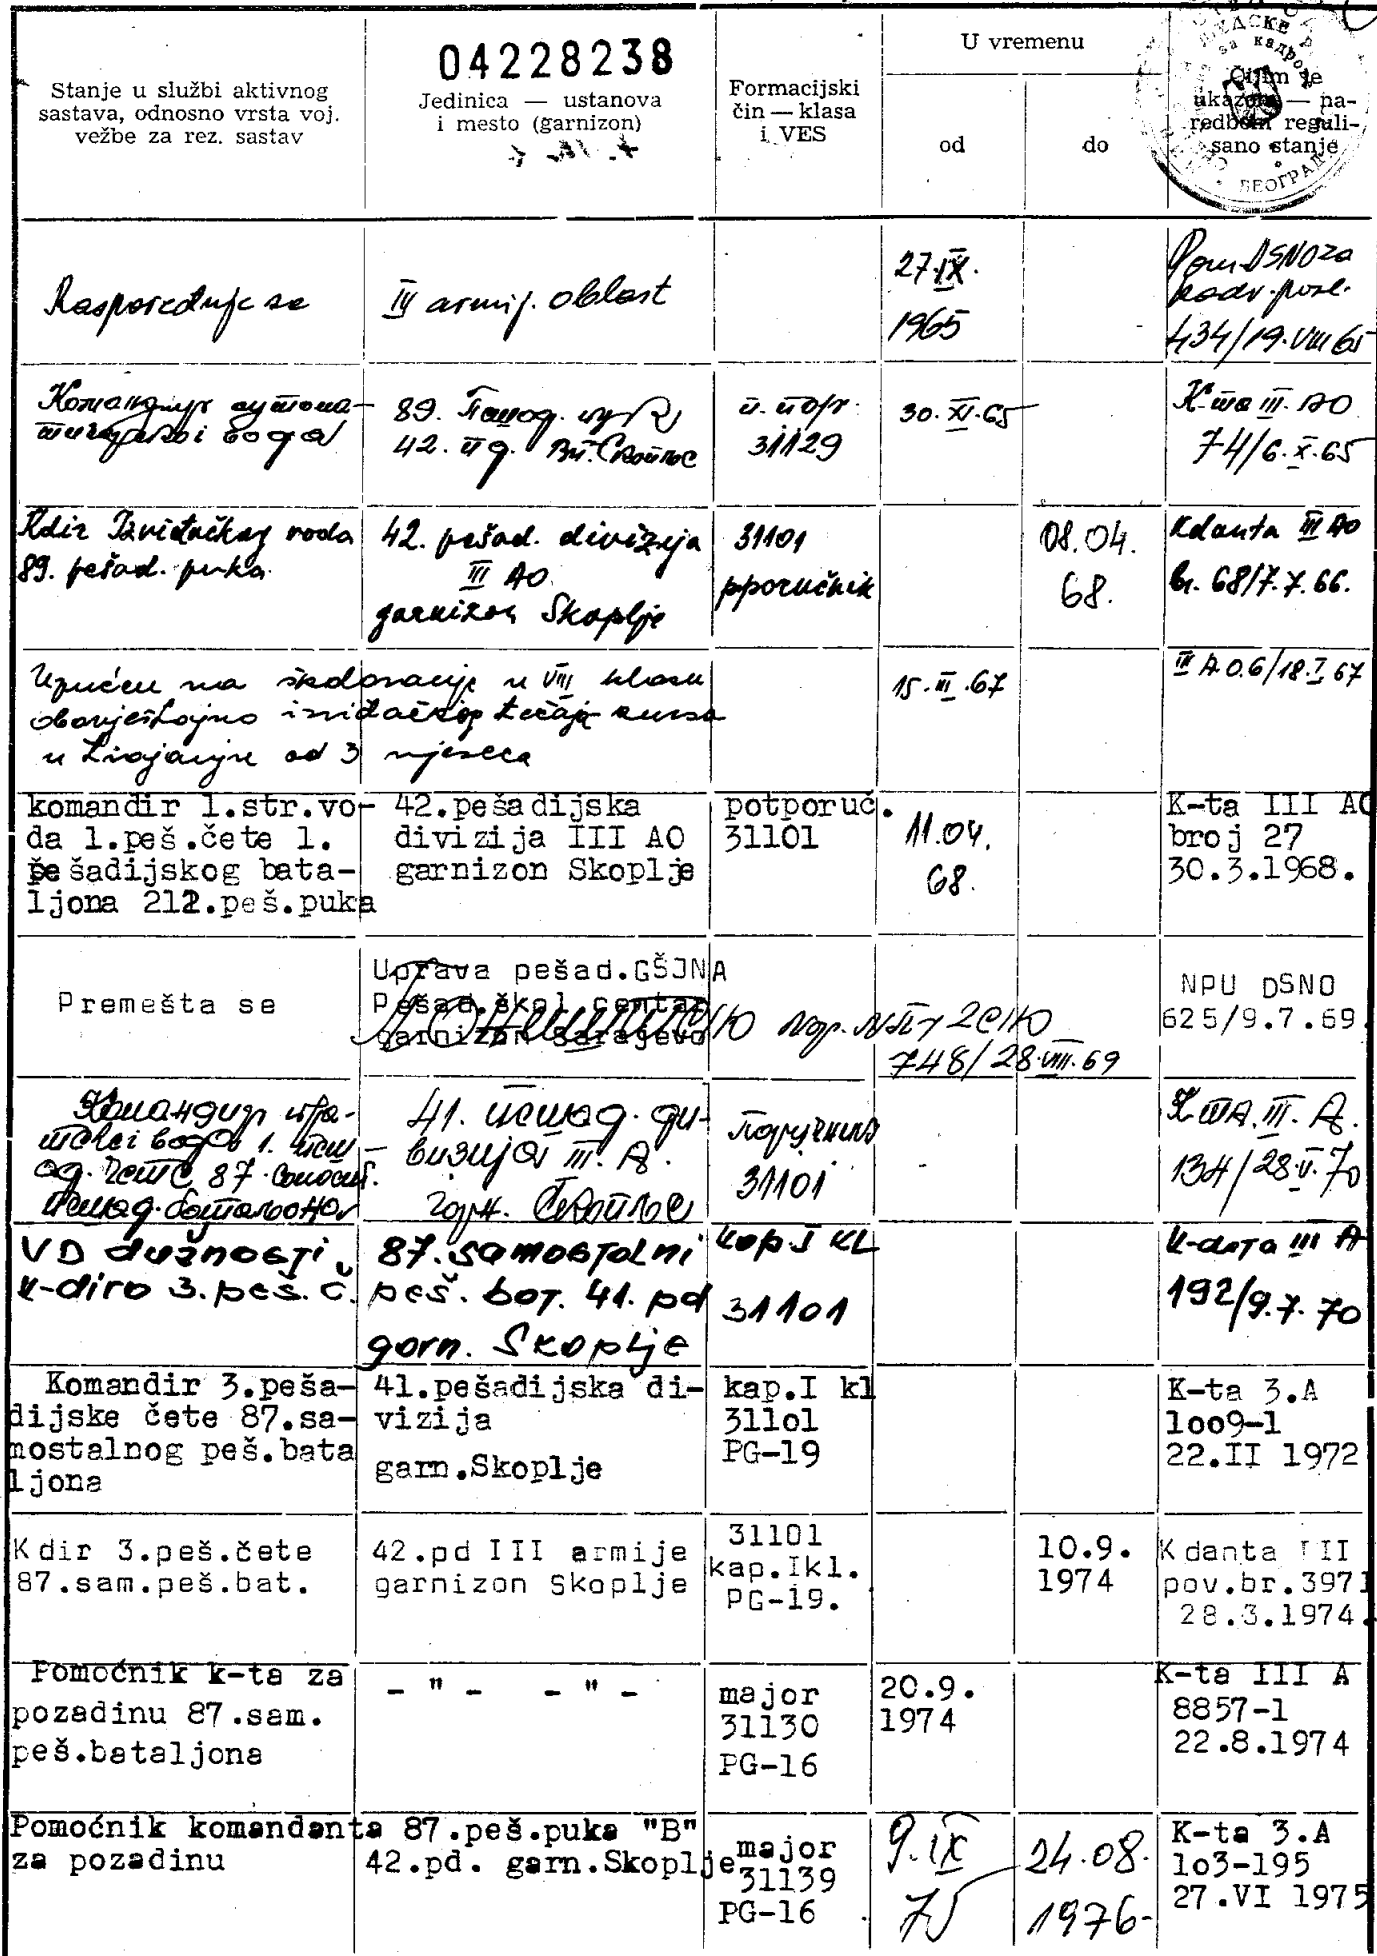 04228238
Stanje u službi aktivnog
sastava, odnosno vrsta voj.
vežbe za rez. sastav
Jedinica — ustanova
i mesto (garnizon)
Formacijski
čin — klasa
i VES
U vremenu
od
do
Čijim je
ukazom — na-
redbom reguli-
sano stanje
БЕОГРАД
Raspoređuje se
III armij. oblast
27.IX.
1965
Pom DSNO za
kadr. posl.
434/19.VIII 65
Командир аутома-
89.
42. пд. Скопље
31129
30.XI.65
К-та III. АО
74/6.X.65
Kdir Izviđačkog voda
89. pešad. puka
42. pešad. divizija
III AO
garnizon Skoplje
31101
pporučnik
08.04.
68.
Kdanta III AO
br. 68/7.7.66.
Upućen na školovanje u VIII klasu
obavještajno izviđačkog tečaja kursa
u trajanju od 3 mjeseca
15.III.67
III A.O.6/18.I.67
komandir 1.str.vo-
da 1.peš.čete 1.
pešadijskog bata-
ljona 212.peš.puka
42.pešadijska
divizija III AO
garnizon Skoplje
potporuč.
31101
11.04.
68.
K-ta III AO
broj 27
30.3.1968.
Premešta se
Uprava pešad.GŠJNA
Pešad.škol.centar
garnizon Sarajevo
748/28.VIII.69
NPU DSNO
625/9.7.69.
Командир стре-
љачког вода 1. пеш
ад. чете 87. самост.
пешад. батаљона
41. пешад. ди-
визија III. А.
гарн. Скопље
поручник
31101
К-та. III. А.
134/28.V.70
VD dužnosti
k-dira 3.peš.č.
87.samostalni
peš. bat. 41. pd
garn. Skoplje
kap I kl
31101
K-data III A
192/9.7.70
Komandir 3.peša-
dijske čete 87.sa-
mostalnog peš.bata
ljona
41.pešadijska di-
vizija
garn.Skoplje
kap.I kl
311o1
PG-19
K-ta 3.A
1oo9-1
22.II 1972
Kdir 3.peš.čete
87.sam.peš.bat.
42.pd III armije
garnizon Skoplje
31101
kap.Ikl.
PG-19.
10.9.
1974
Kdanta III
pov.br.3971
28.3.1974.
Pomoćnik k-ta za
pozadinu 87.sam.
peš.bataljona
- " - - " -
major
31130
PG-16
20.9.
1974
K-ta III A
8857-1
22.8.1974
Pomoćnik komandanta 87.peš.puka "B"
za pozadinu 42.pd. garn.Skoplje
major
31139
PG-16
9.IX
75
24.08.
1976-
K-ta 3.A
1o3-195
27.VI 1975